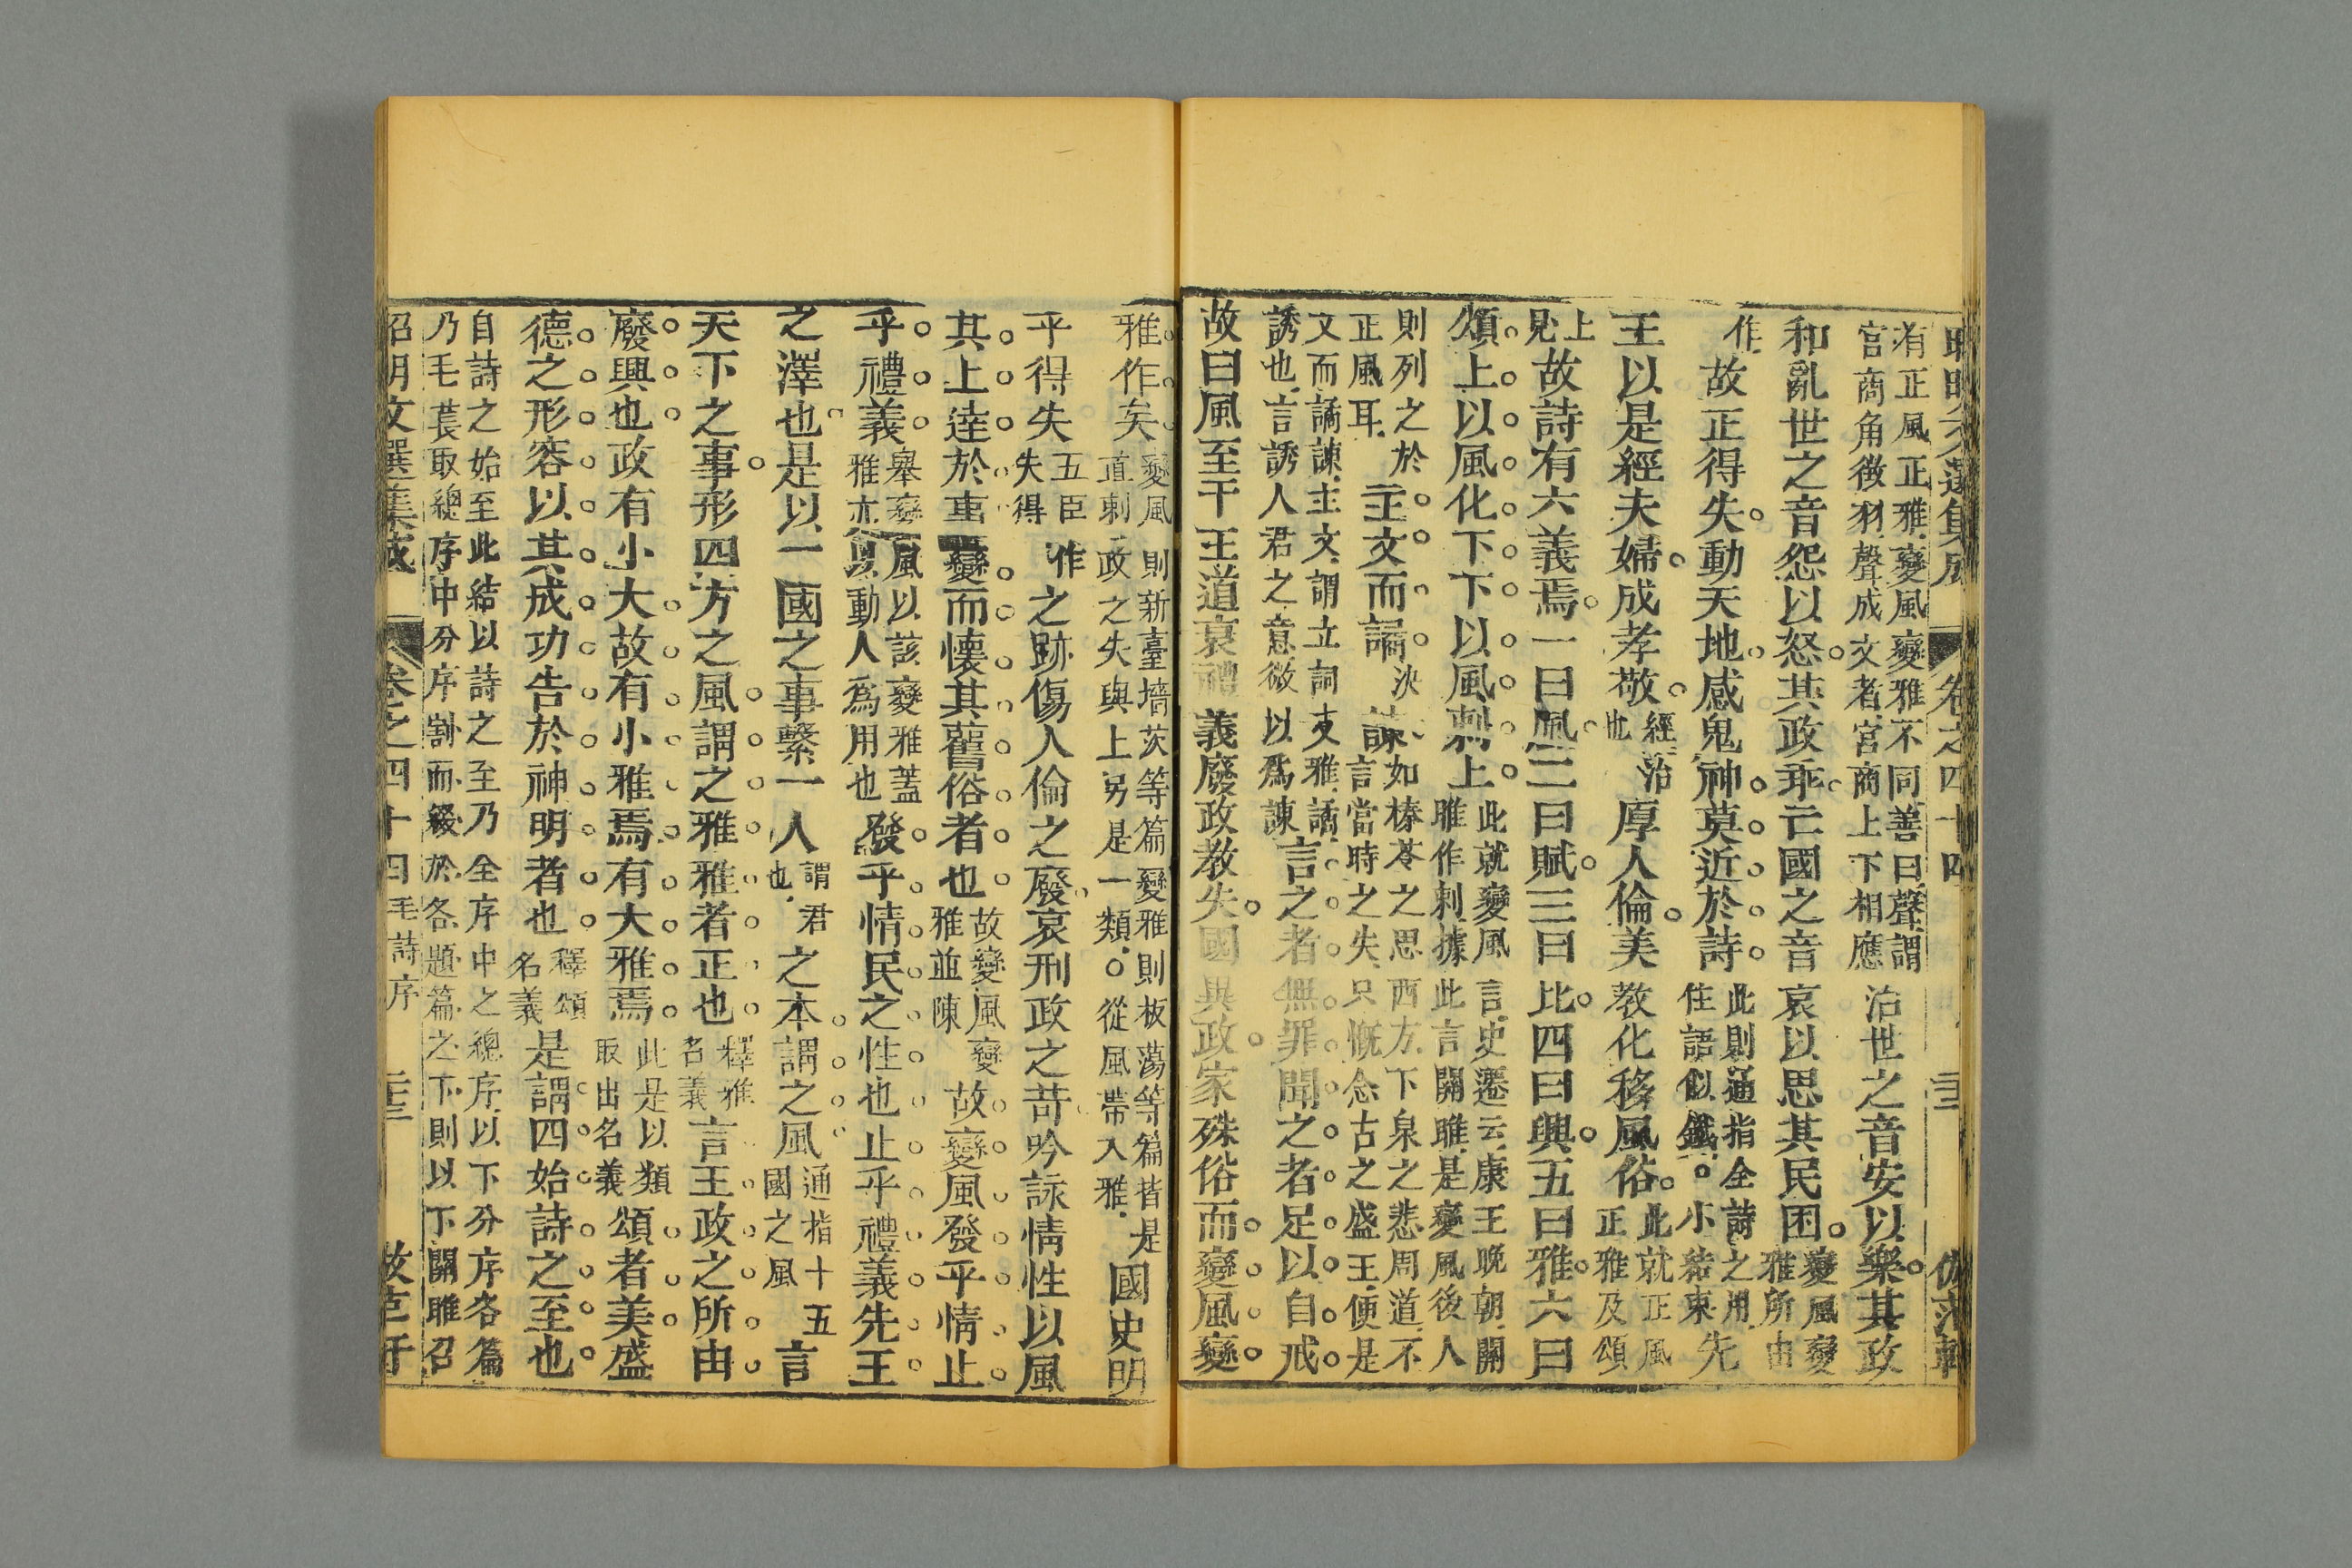 卷之四十四
有正風正雅變風變雅不同善曰聲謂
宮商角徵羽聲成文者宮商上下相應
治世之音安以樂其政
和亂世之音怨以怒其政乖亡國之音哀以思其民困
變風變
雅所由
作
故正得失動天地感鬼神莫近於詩
此則通指全詩之用
住語似鐵小結束
先
王以是經夫婦成孝敬
經治
也
厚人倫美教化移風俗
此就正風
正雅及頌
上
見
故詩有六義焉一曰風二曰賦三曰比四曰興五曰雅六曰
頌上以風化下下以風刺上
此就變風言史遷云康王晚朝關
雎作刺據此言關雎是變風後人
則列之於
正風耳
主文而譎諫
決如榛苓之思西方下泉之悲周道不
言當時之失只慨念古之盛王便是
文而譎諫主文謂立詞支雅譎
誘也言誘人君之意微以爲諫
言之者無罪聞之者足以自戒
故曰風至于王道衰禮義廢政教失國異政家殊俗而變風變
雅作矣
變風則新臺墻茨等篇變雅則板蕩等篇皆是
直刺政之失與上另是一類從風帶入雅
國史明
乎得失
五臣作
失得
之跡傷人倫之廢哀刑政之苛吟詠情性以風
其上達於事變而懷其舊俗者也
故變風變
雅並陳
故變風發乎情止
乎禮義
舉變風以該變雅蓋
雅亦以動人爲用也
發乎情民之性也止乎禮義先王
之澤也是以一國之事繫一人
謂君
也
之本謂之風
通指十五
國之風
言
天下之事形四方之風謂之雅雅者正也
釋雅
名義
言王政之所由
廢興也政有小大故有小雅焉有大雅焉
此是以類
取出名義
頌者美盛
德之形容以其成功告於神明者也
釋頌
名義
是謂四始詩之至也
自詩之始至此結以詩之至乃全序中之總序以下分序各篇
乃毛萇取總序中分序割而綴於各題篇之下則以下關雎召
昭明文選集成 卷之四十四 毛詩序